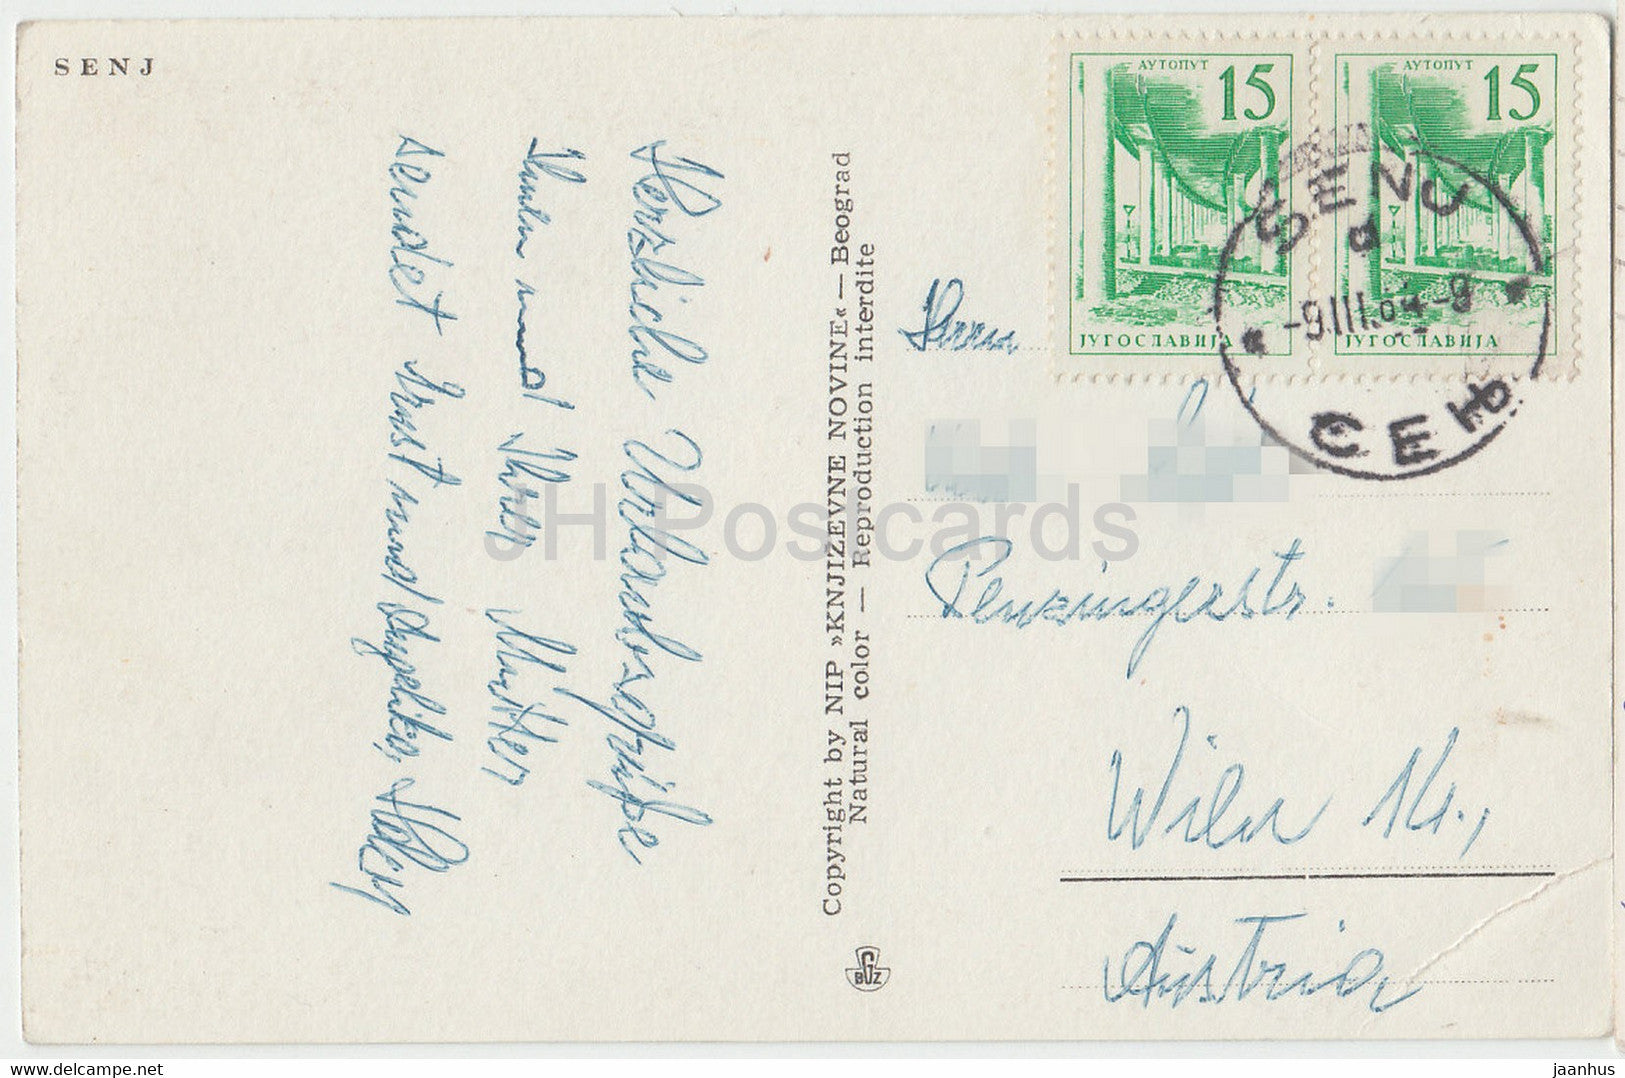 SENJ
Herzliche Urlaubsgrüße
Ihnen und Ihrer Mutter
sendet Ernst und Angelika
Copyright by NIP »KNJIŽEVNE NOVINE« — Beograd
Natural color — Reproduction interdite
BGZ
АУТОПУТ 15
ЈУГОСЛАВИЈА
АУТОПУТ 15
ЈУГОСЛАВИЈА
SENJ
d
-9.III.64-8
СЕЊ
Herrn
Penzingerstr.
Wien 14.,
Austria
JH Postcards
delcampe.net
jaanhus